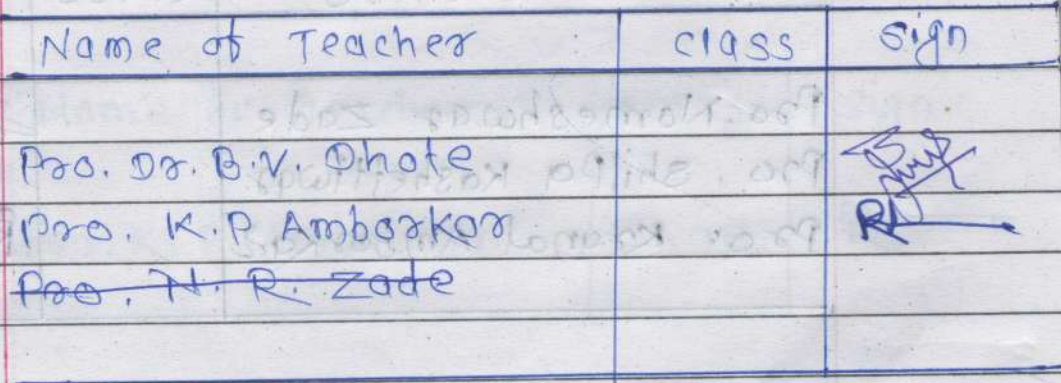 Name of Teacher class Sign
Pro. Dr. B.V. Dhote
Pro. K.P Ambarkar
Pro. N. R. Zade